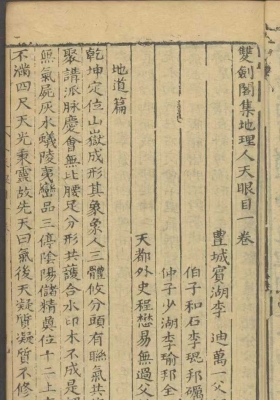 雙劍閣集地理人天眼目一卷
豐城賓湖李 迪萬一父
伯子和石李琨邦礪
仲子少湖李瑜邦全
天都外史程懋易無過父
地道篇
乾坤定位山嶽成形其象象人三體攸分頭有聮氣共
聚講派脉慶會無比腰足分形共護合水印木不成是
煞氣屍灰水蟻陵夷巒品三停陰陽儲精奠位十二上
不滿四尺天光秉震故先天曰氣後天凝質凝質不修